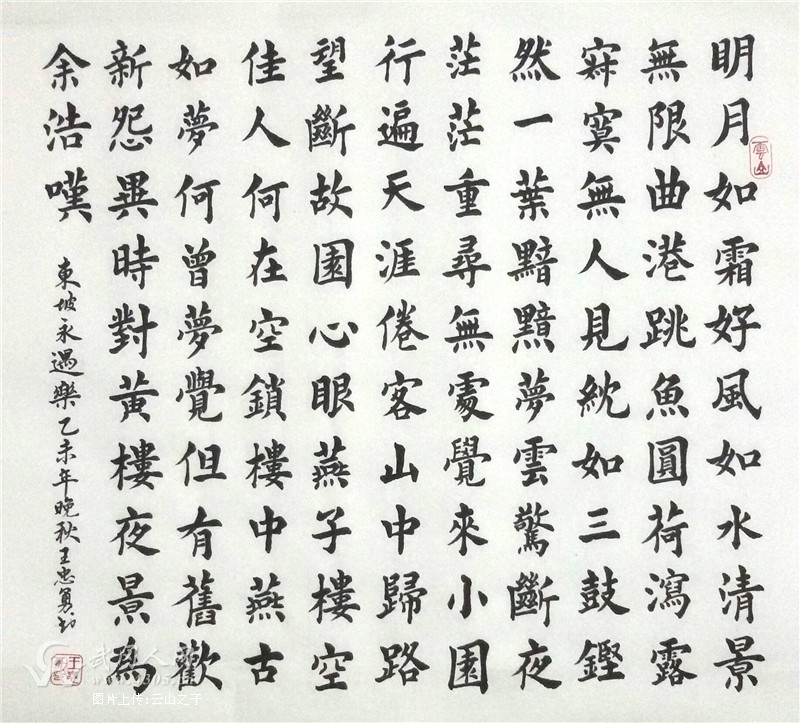 明月如霜好風如水清景
無限曲港跳魚圓荷瀉露
寂寞無人見紞如三鼓鏗
然一葉黯黯夢雲驚斷夜
茫茫重尋無處覺來小園
行遍天涯倦客山中歸路
望斷故園心眼燕子樓空
佳人何在空鎖樓中燕古
如夢何曾夢覺但有舊歡
新怨異時對黃樓夜景為
余浩嘆
東坡永遇樂乙未年晚秋王忠勇书
雲山
图片上传:云山之子